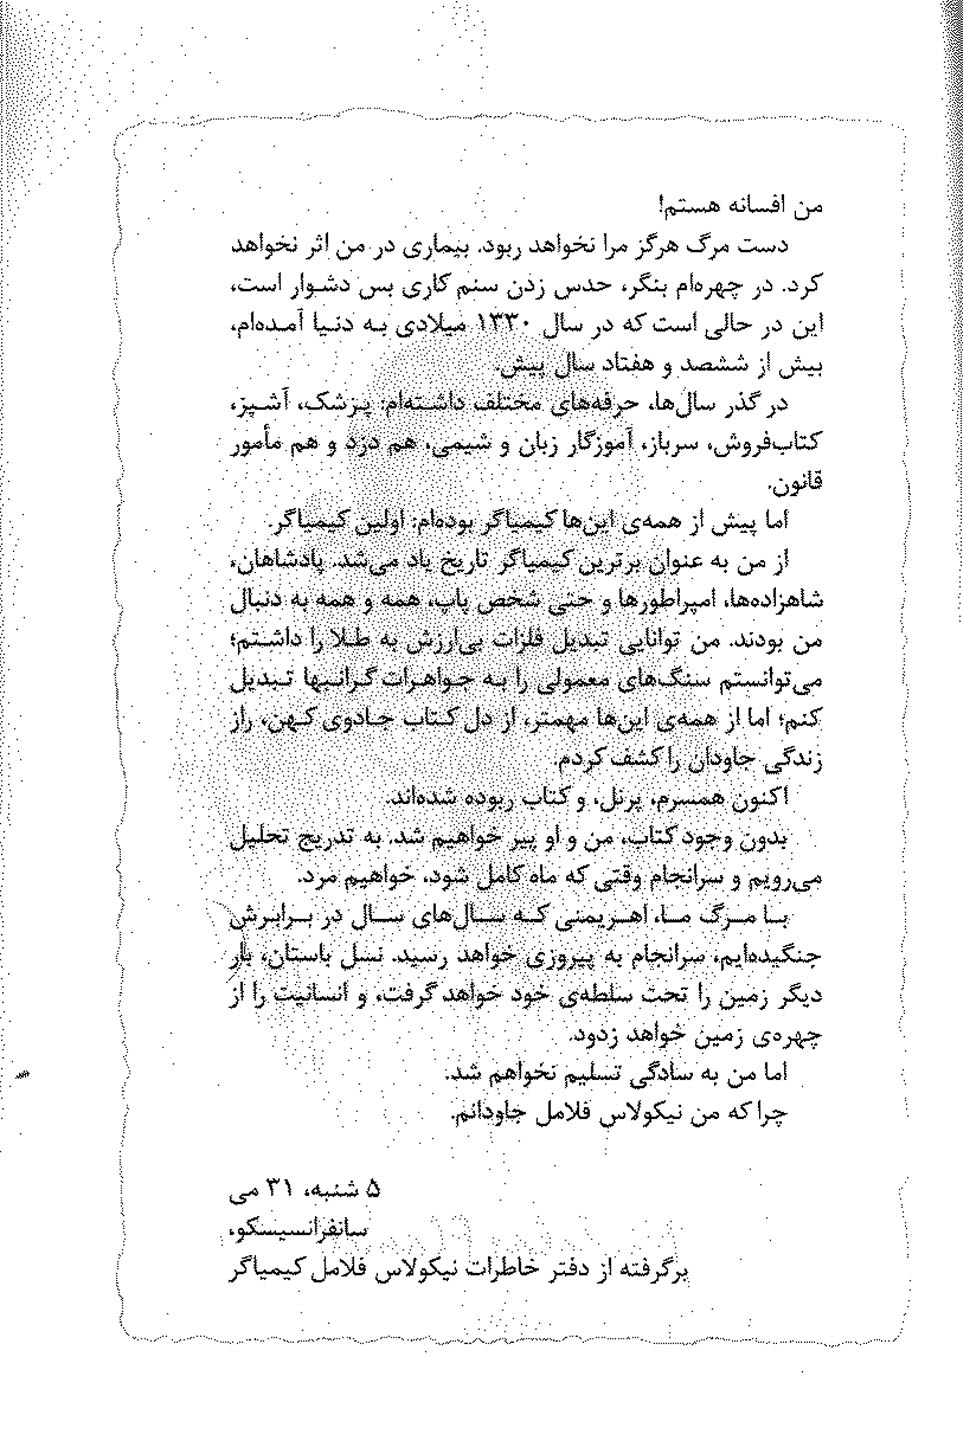 من افسانه هستم!
دست مرگ هرگز مرا نخواهد ربود. بیماری در من اثر نخواهد
کرد. در چهره‌ام بنگر، حدس زدن سنم کاری بس دشوار است،
این در حالی است که در سال ۱۳۳۰ میلادی به دنیا آمده‌ام،
بیش از ششصد و هفتاد سال پیش.
در گذر سال‌ها، حرفه‌های مختلف داشته‌ام: پزشک، آشپز،
کتاب‌فروش، سرباز، آموزگار زبان و شیمی، هم دزد و هم مأمور
قانون.
اما پیش از همه‌ی این‌ها کیمیاگر بوده‌ام: اولین کیمیاگر.
از من به عنوان برترین کیمیاگر تاریخ یاد می‌شد. پادشاهان،
شاهزاده‌ها، امپراطورها و حتی شخص پاپ، همه و همه به دنبال
من بودند. من توانایی تبدیل فلزات بی‌ارزش به طلا را داشتم؛
می‌توانستم سنگ‌های معمولی را به جواهرات گرانبها تبدیل
کنم؛ اما از همه‌ی این‌ها مهمتر، از دل کتاب جادوی کهن، راز
زندگی جاودان را کشف کردم.
اکنون همسرم، پرنل، و کتاب ربوده شده‌اند.
بدون وجود کتاب، من و او پیر خواهیم شد. به تدریج تحلیل
می‌رویم و سرانجام وقتی که ماه کامل شود، خواهیم مرد.
با مرگ ما، اهریمنی که سال‌های سال در برابرش
جنگیده‌ایم، سرانجام به پیروزی خواهد رسید. نسل باستان، بار
دیگر زمین را تحت سلطه‌ی خود خواهد گرفت، و انسانیت را از
چهره‌ی زمین خواهد زدود.
اما من به سادگی تسلیم نخواهم شد.
چرا که من نیکولاس فلامل جاودانم.
۵ شنبه، ۳۱ می
سانفرانسیسکو،
برگرفته از دفتر خاطرات نیکولاس فلامل کیمیاگر